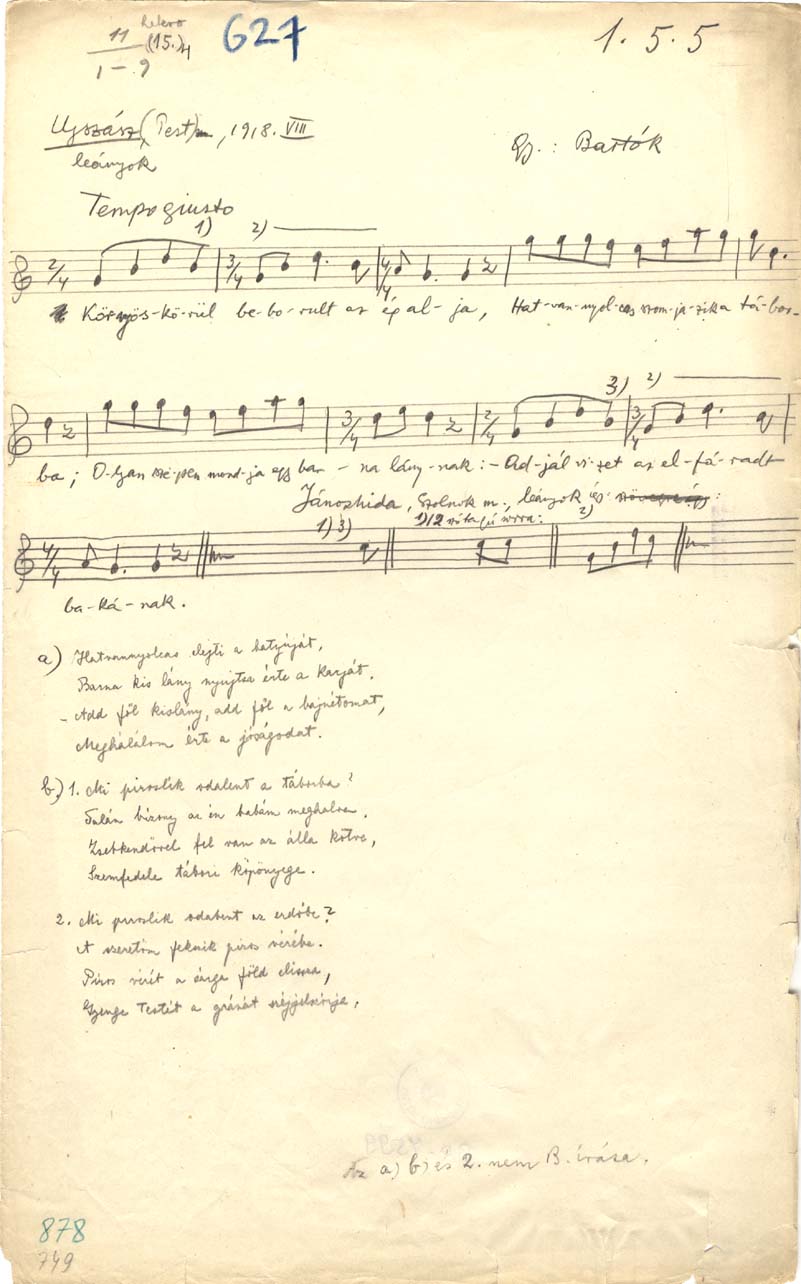 11
(15.)
1 – 9
627
1. 5. 5
Ujszász, (Pest) m., 1918. VIII
leányok
Gy.: Bartók
Tempo giusto
1) 2)
2/4 3/4 4/4
Környös-kö-rül be-bo-rult az ég al-ja, Hat-van-nyol-cas szom-ja-zik a tá-bor-
3) 2)
3/4 2/4 3/4
ba; O-lyan szé-pen mond-ja egy bar-na lány-nak: - Ad-jál vi-zet az el-fá-radt
Jánoshida, Szolnok m., leányok így:
1) 3) 1) 12 szótagú sorra: 2)
4/4
ba-ká-nak.
a) Hatvannyolcas elejti a batyúját,
Barna kis lány nyujtsa érte a karját.
- Add föl kislány, add föl a bajnétomat,
Meghálálom érte a jóságodat.
b) 1. Mi piroslik odalent a táborba?
Talán bizony az én babám meghalva.
Zsebkendővel fel van az álla kötve,
Szemfedele tábori köpönyege.
2. Mi piroslik odabent az erdőbe?
A szeretőm fekszik piros vérébe.
Piros vérit a sárga föld elissza,
Gyenge testét a gránát
Az a) b) és 2. nem B. írása.
878
749